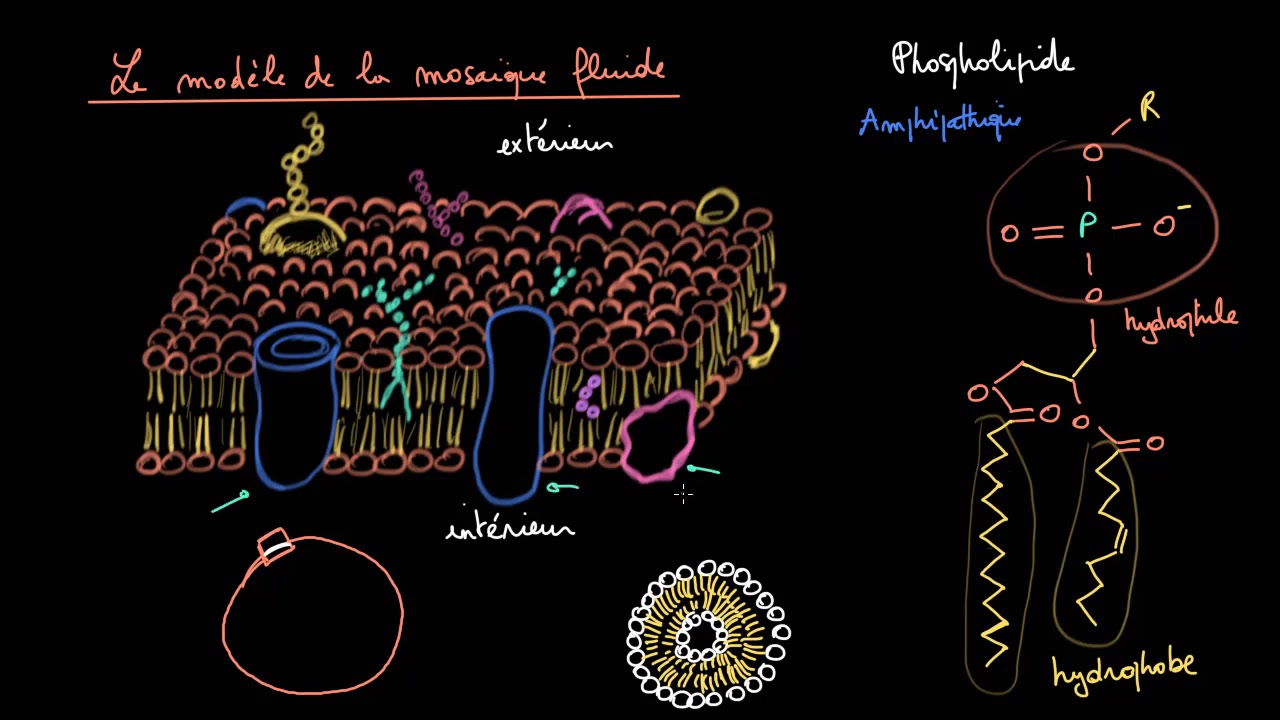 Le modèle de la mosaïque fluide
extérieur
intérieur
Phospholipide
Amphipathique
R
O
O = P - O -
O
hydrophile
O
O
O
O
hydrophobe